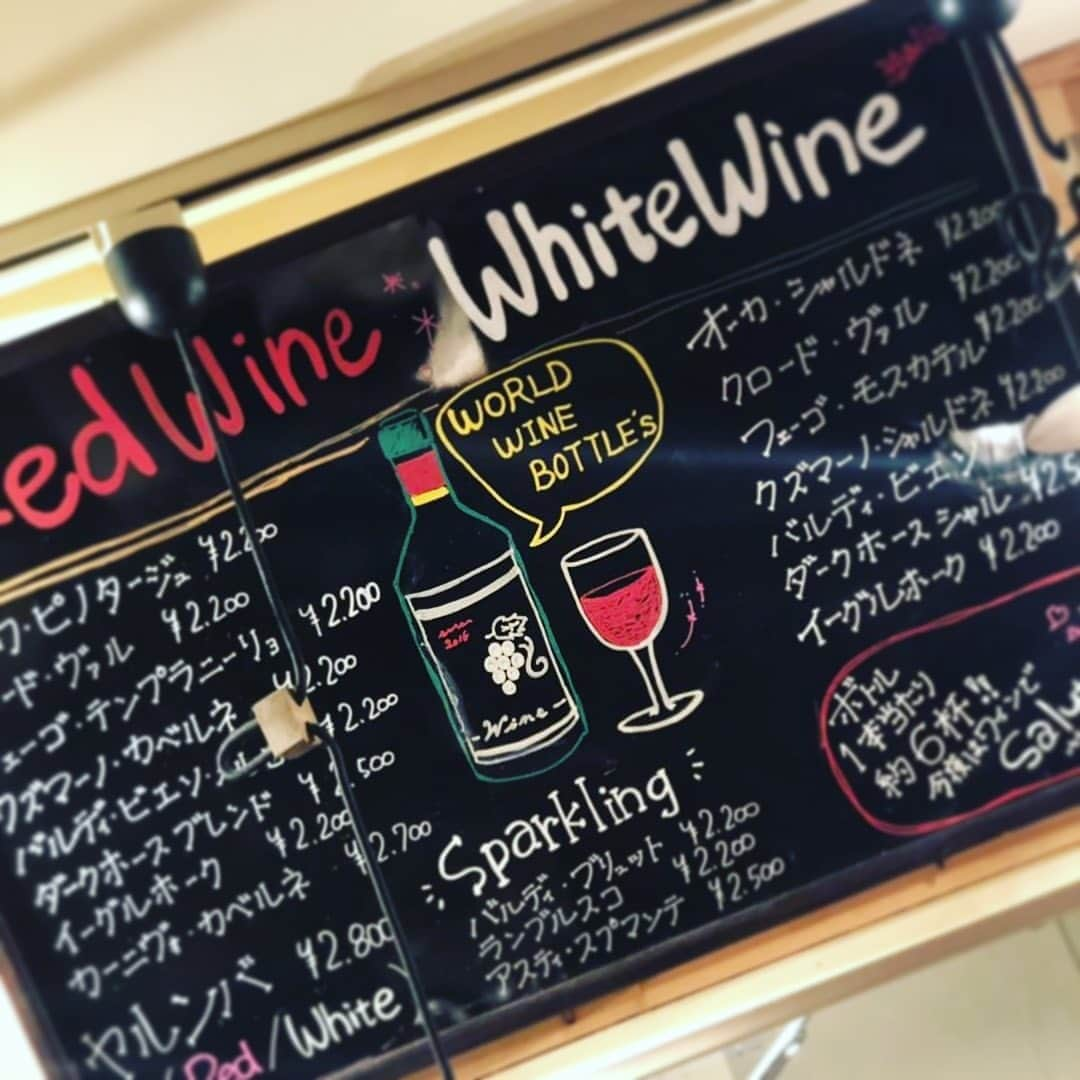 ed Wine
ワ・ピノタージュ ¥2.200
ード・ヴァル ¥2.200
ェーゴ・テンプラニーリョ ¥2.200
クズマーノ・カベルネ ¥2.200
バルディ・ビエソ・ ¥2.200
ダークホース ブレンド ¥2.500
イーグルホーク ¥2.200
カーニヴォ・カベルネ ¥2.700
ヤルンバ ¥2.800
Red/White)
WORLD
WINE
BOTTLE's
2016
Wine
Sparkling
バルディ・ブリュット ¥2.200
ランブルスコ ¥2.200
アスティ・スプマンテ ¥2.500
White Wine
オーカ・シャルドネ ¥2.200
クロード・ヴァル ¥2.200
フェーゴ・モスカテル ¥2.200
クズマーノ・シャルドネ ¥2.200
バルディ・ビエソ
ダークホース シャル ¥2.5
イーグルホーク ¥2.200
ボトル
1本当たり
約6杯!!
今夜はワインで
Salu